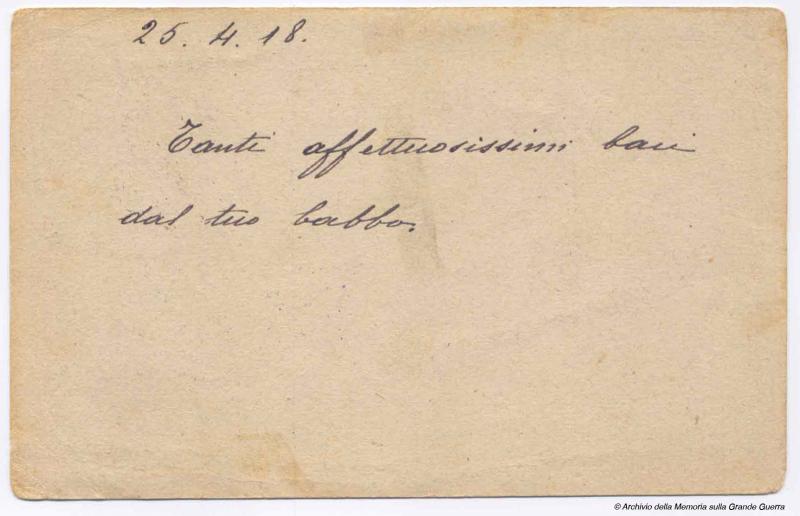 25. 4. 18.
Tanti affettuosissimi baci
dal tuo babbo.
© Archivio della Memoria sulla Grande Guerra